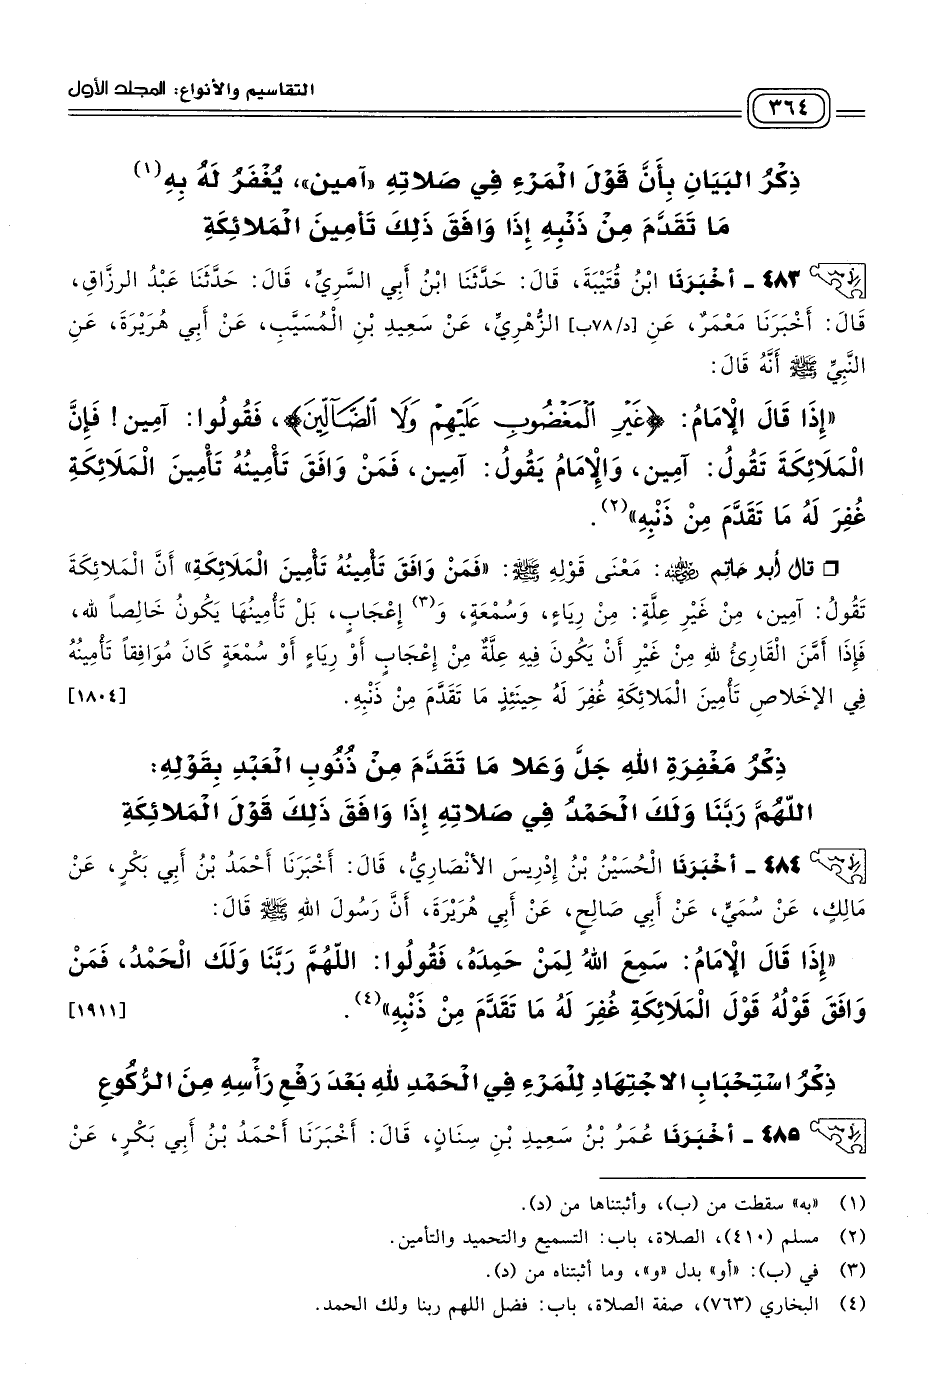 التقاسيم والأنواع: المجلد الأول
٣٦٤
ذِكْرُ البَيَانِ بِأَنَّ قَوْلَ المَرْءِ فِي صَلاتِهِ «آمين»، يُغْفَرُ لَهُ بِهِ(١)
مَا تَقَدَّمَ مِنْ ذَنْبِهِ إِذَا وَافَقَ ذَلِكَ تَأْمِينَ الْمَلائِكَةِ
٤٨٣ - أخْبَرَنَا ابْنُ قُتَيْبَةَ، قَالَ: حَدَّثَنَا ابْنُ أَبِي السَّرِيِّ، قَالَ: حَدَّثَنَا عَبْدُ الرزَّاقِ،
قَالَ: أَخْبَرَنَا مَعْمَرٌ، عَنِ [د/٧٨ب] الزُّهْرِيِّ، عَنْ سَعِيدِ بْنِ الْمُسَيَّبِ، عَنْ أَبِي هُرَيْرَةَ، عَنِ
النَّبِيِّ ﷺ أَنَّهُ قَالَ:
«إِذَا قَالَ الْإِمَامُ: ﴿غَيْرِ الْمَغْضُوبِ عَلَيْهِمْ وَلَا الضَّآلِّينَ﴾، فَقُولُوا: آمِين! فَإِنَّ
الْمَلَائِكَةَ تَقُولُ: آمِين، وَالْإِمَامُ يَقُولُ: آمِين، فَمَنْ وَافَقَ تَأْمِينُهُ تَأْمِينَ الْمَلَائِكَةِ
غُفِرَ لَهُ مَا تَقَدَّمَ مِنْ ذَنْبِهِ»(٢).
❒ قال أبو حاتم رضي الله عنه: مَعْنَى قَوْلِهِ ﷺ: «فَمَنْ وَافَقَ تَأْمِينُهُ تَأْمِينَ الْمَلَائِكَةِ» أَنَّ الْمَلَائِكَةَ
تَقُولُ: آمِين، مِنْ غَيْرِ عِلَّةٍ: مِنْ رِيَاءٍ، وَسُمْعَةٍ، وَ(٣) إِعْجَابٍ، بَلْ تَأْمِينُهَا يَكُونُ خَالِصاً للهِ،
فَإِذَا أَمَّنَ الْقَارِئُ للهِ مِنْ غَيْرِ أَنْ يَكُونَ فِيهِ عِلَّةٌ مِنْ إِعْجَابٍ أَوْ رِيَاءٍ أَوْ سُمْعَةٍ كَانَ مُوَافِقاً تَأْمِينُهُ
فِي الإِخْلاصِ تَأْمِينَ الْمَلَائِكَةِ غُفِرَ لَهُ حِينَئِذٍ مَا تَقَدَّمَ مِنْ ذَنْبِهِ. [١٨٠٤]
ذِكْرُ مَغْفِرَةِ اللهِ جَلَّ وَعَلا مَا تَقَدَّمَ مِنْ ذُنُوبِ العَبْدِ بِقَوْلِهِ:
اللّهُمَّ رَبَّنَا وَلَكَ الحَمْدُ فِي صَلاتِهِ إِذَا وَافَقَ ذَلِكَ قَوْلَ الْمَلائِكَةِ
٤٨٤ - أخْبَرَنَا الْحُسَيْنُ بْنُ إِدْرِيسَ الأَنْصَارِيُّ، قَالَ: أَخْبَرَنَا أَحْمَدُ بْنُ أَبِي بَكْرٍ، عَنْ
مَالِكٍ، عَنْ سُمَيٍّ، عَنْ أَبِي صَالِحٍ، عَنْ أَبِي هُرَيْرَةَ، أَنَّ رَسُولَ اللهِ ﷺ قَالَ:
«إِذَا قَالَ الْإِمَامُ: سَمِعَ اللهُ لِمَنْ حَمِدَهُ، فَقُولُوا: اللّهُمَّ رَبَّنَا وَلَكَ الْحَمْدُ، فَمَنْ
وَافَقَ قَوْلُهُ قَوْلَ الْمَلَائِكَةِ غُفِرَ لَهُ مَا تَقَدَّمَ مِنْ ذَنْبِهِ»(٤). [١٩١١]
ذِكْرُ اسْتِحْبَابِ الاجْتِهَادِ لِلْمَرْءِ فِي الْحَمْدِ للهِ بَعْدَ رَفْعِ رَأْسِهِ مِنَ الرُّكُوعِ
٤٨٥ - أخْبَرَنَا عُمَرُ بْنُ سَعِيدِ بْنِ سِنَانٍ، قَالَ: أَخْبَرَنَا أَحْمَدُ بْنُ أَبِي بَكْرٍ، عَنْ
(١) «به» سقطت من (ب)، وأثبتناها من (د).
(٢) مسلم (٤١٠)، الصلاة، باب: التسميع والتحميد والتأمين.
(٣) في (ب): «أو» بدل «و»، وما أثبتناه من (د).
(٤) البخاري (٧٦٣)، صفة الصلاة، باب: فضل اللهم ربنا ولك الحمد.